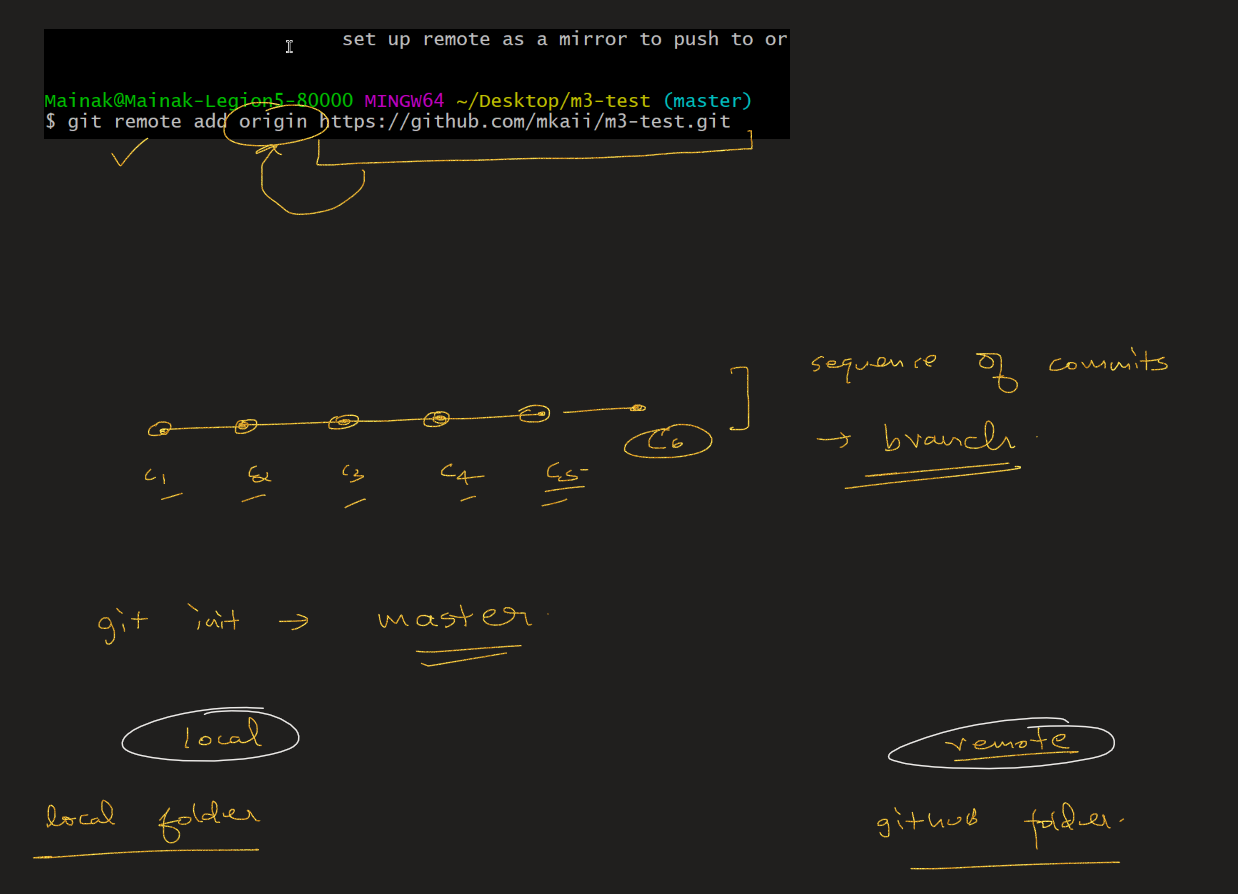 set up remote as a mirror to push to or
Mainak@Mainak-Legion5-80000 MINGW64 ~/Desktop/m3-test (master)
$ git remote add origin https://github.com/mkaii/m3-test.git
sequence of commits
C6
→ branch
C1 C2 C3 C4 C5
git init → master
local remote
local folder github folder